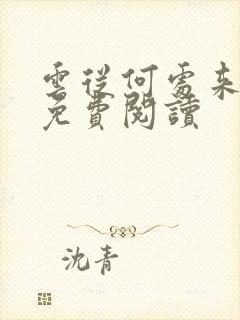 雲從何處來
免費閱讀
沈青